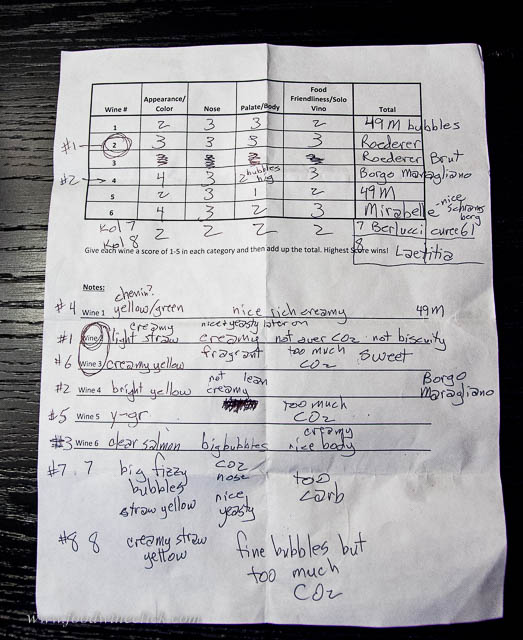 Wine # Appearance/ Color Nose Palate/Body Food Friendliness/Solo Vino Total
1 2 3 3 2 49M bubbles
#1 → 2 3 3 3 3 Roederer
3 Roederer Brut
#2 → 4 4 3 2 bubbles big 3 Borgo Maragliano
5 2 3 1 2 49M
6 4 3 2 3 Mirabelle - nice Schramsberg
Kol 7 2 2 2 2 7 Berlucci cuvee 61
Kol 8 8 Laetitia
Give each wine a score of 1-5 in each category and then add up the total. Highest Score wins!
Notes:
chenin?
#4 Wine 1 yellow/green nice rich creamy 49M
creamy nice+yeasty later on
#1 Wine 2 light straw creamy not over CO2 not biscuity
fragrant too much
#6 Wine 3 creamy yellow CO2 sweet
not lean Borgo
#2 Wine 4 bright yellow creamy Maragliano
too much
#5 Wine 5 y-gr CO2
creamy
#3 Wine 6 clear salmon big bubbles nice body
#7 7 big fizzy CO2
bubbles nose too
straw yellow nice carb
yeasty
#8 8 creamy straw fine bubbles but
yellow too much
CO2